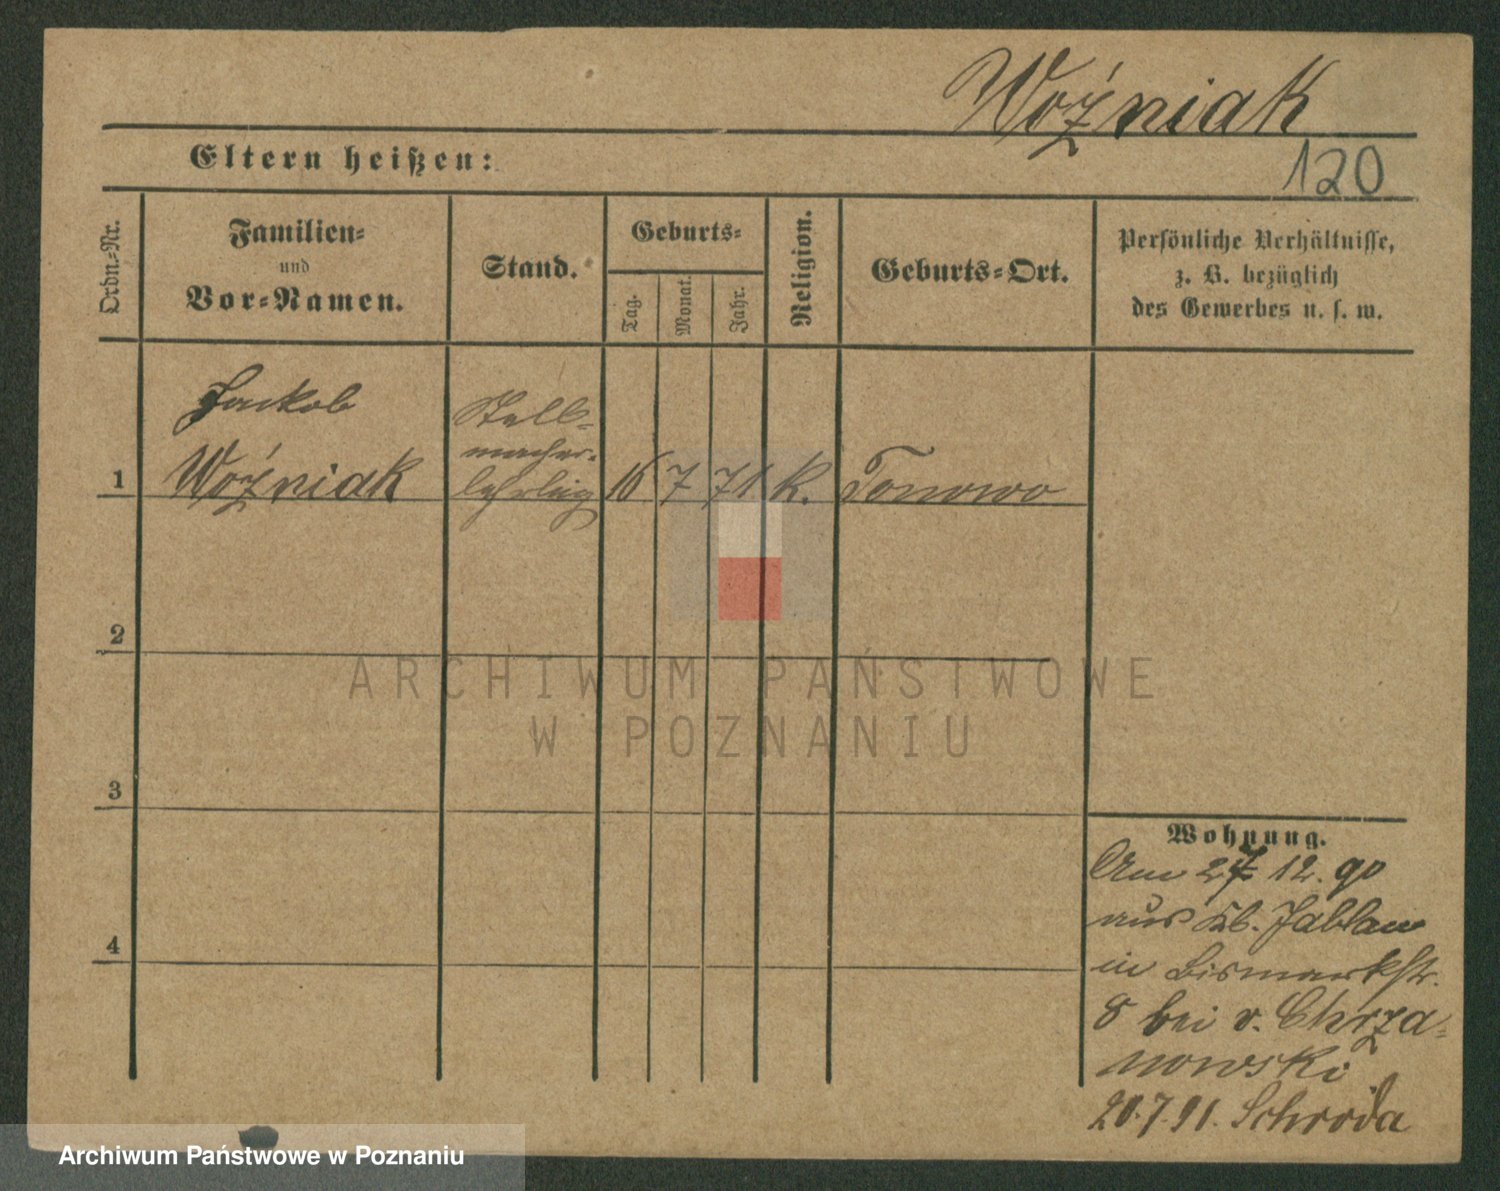 Woźniak
Eltern heißen:
120
Ordn.-Nr.
Familien-
und
Vor-Namen.
Stand.
Geburts-
Tag.
Monat.
Jahr.
Religion.
Geburts-Ort.
Persönliche Verhältnisse,
z. B. bezüglich
des Gewerbes u. s. w.
Jackob
Woźniak
Stell-
macher-
lehrling
1
16 7 71 K. Tonowo
2
3
4
ARCHIWUM PAŃSTWOWE
W POZNANIU
Wohnung.
Am 27 12. 90
aus Kb. Jablau
in Bismarkstr.
8 bei v. Chrza-
nowski
20.7.91. Schroda
Archiwum Państwowe w Poznaniu